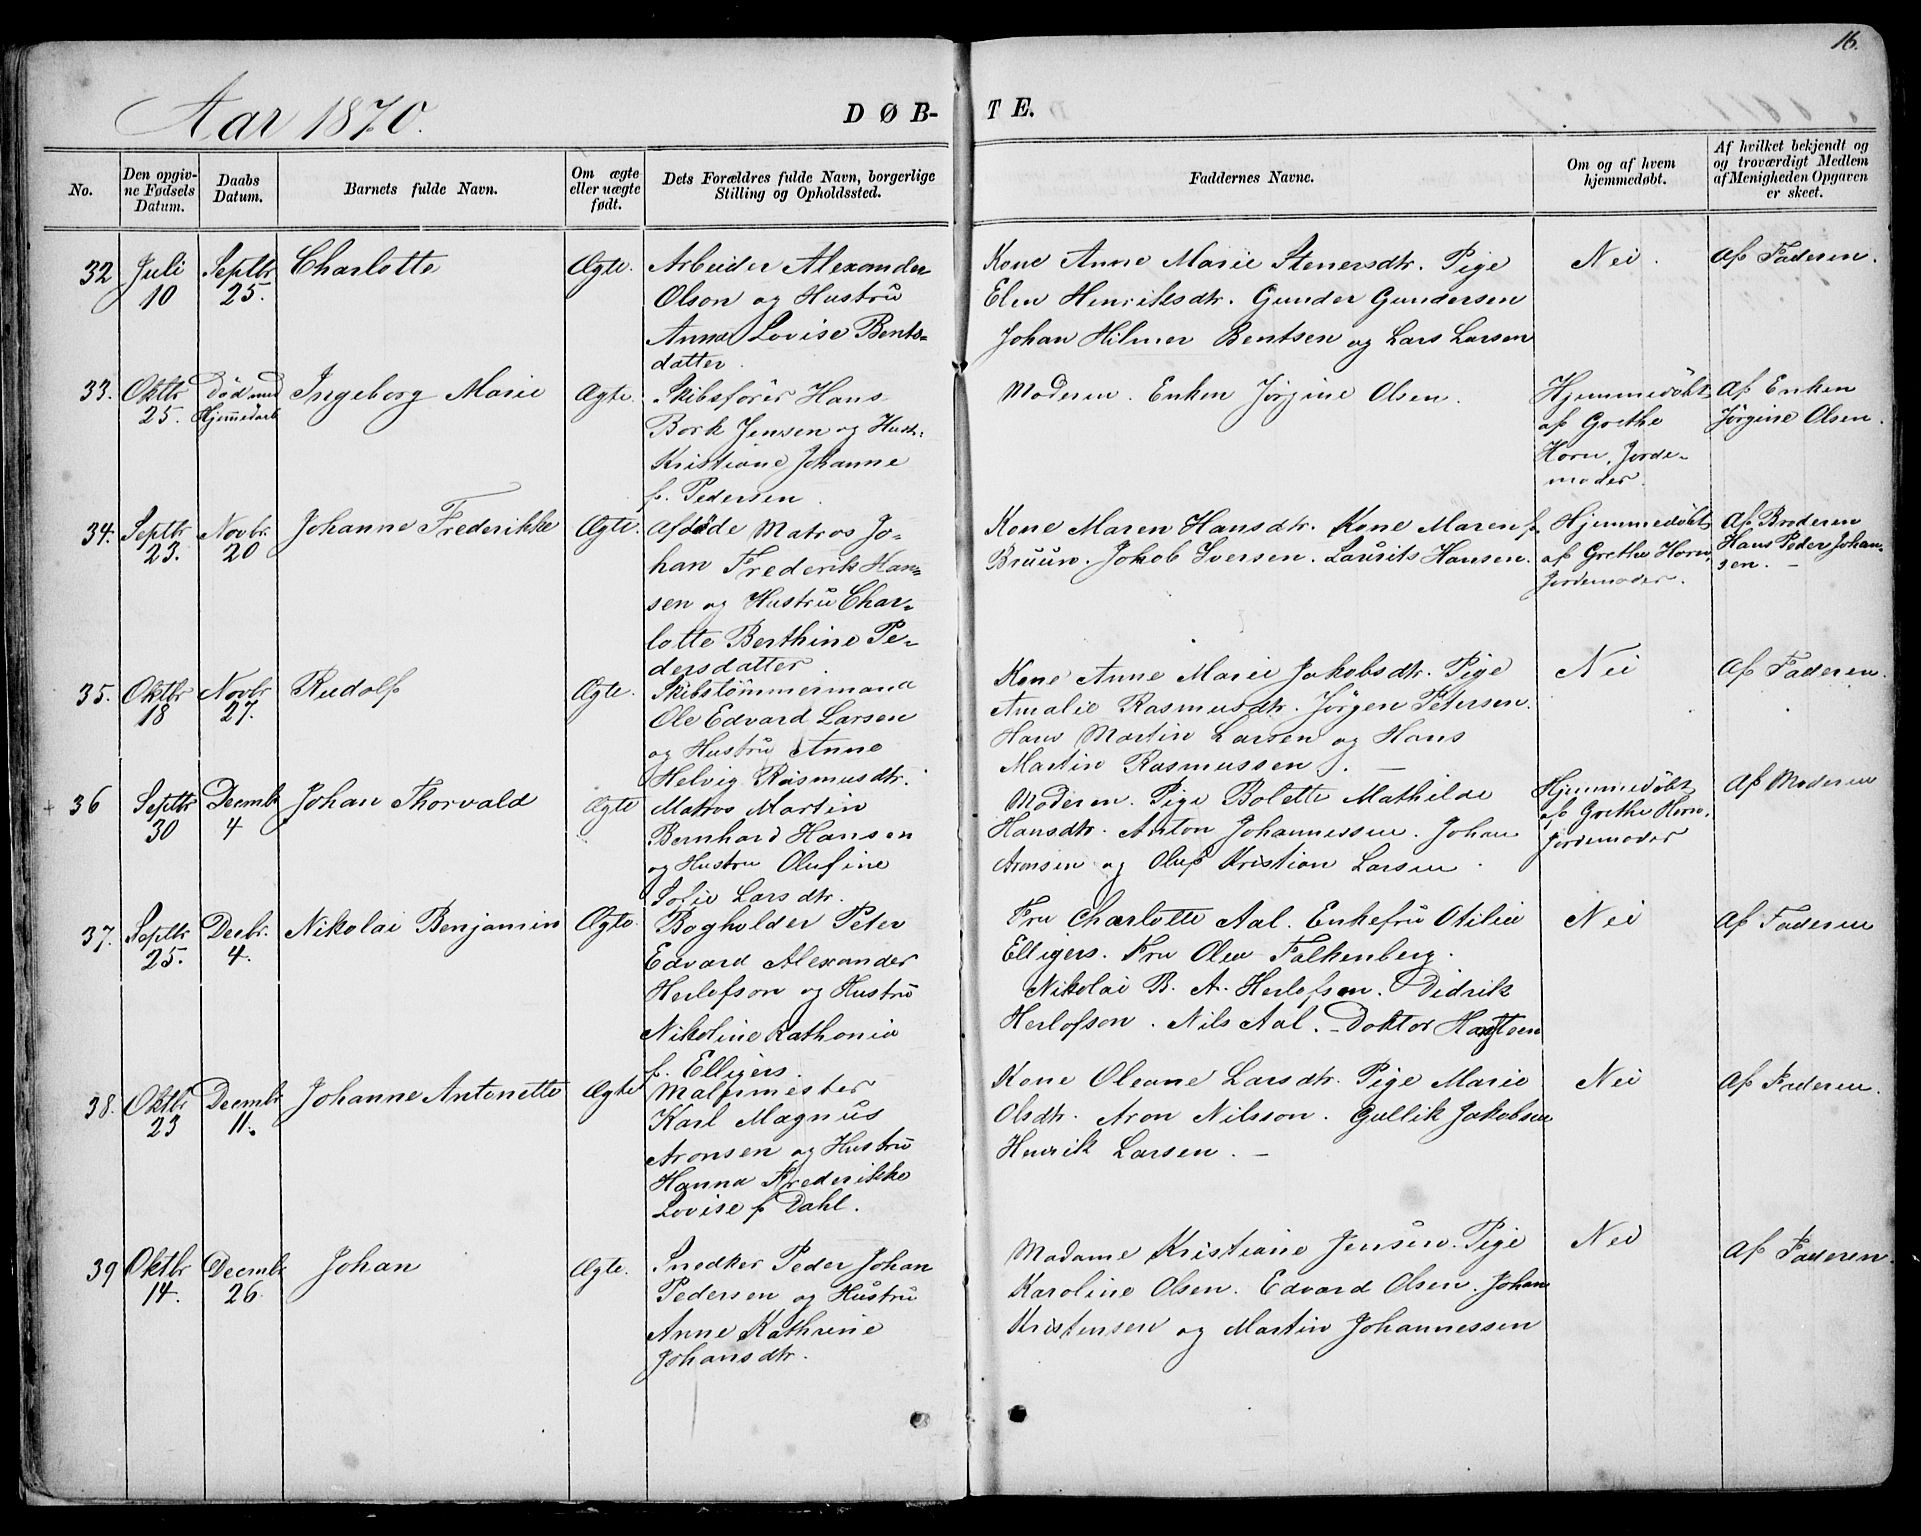 16.
Aar 1870.
DØB-
TE.
No.
Den opgiv-
ne Fødsels
Datum.
Daabs
Datum.
Barnets fulde Navn.
Om ægte
eller uægte
født.
Dets Forældres fulde Navn, borgerlige
Stilling og Opholdssted.
Faddernes Navne.
Om og af hvem
hjemmedøbt.
Af hvilket bekjendt og
og troværdigt Medlem
af Menigheden Opgaven
er skeet.
32 Juli
10
Septbr
25.
Charlotte
Ægte.
Arbeider Alexander
Olson og Hustru
Anna Lovise Bents-
datter.
Kone Anne Marie Stenersdtr. Pige
Elen Henriksdtr. Gunder Gundersen
Johan Hilmer Bentsen og Lars Larsen
Nei.
Af Faderen.
33. Oktbr
25.
Død med
Hjemmedaab
Ingeborg Marie
Ægte.
Skibsfører Hans
Bork Jensen og Hustr.
Kristiane Johanne
f. Pedersen.
Moderen. Enken Jørgine Olsen.
Hjemmedøbt
af Grethe
Horn, Jorde-
moder.
Af Enken
Jørgine Olsen.
34. Septbr
23.
Novbr.
20
Johanne Frederikke
Ægte.
Afdøde Matros Jo-
han Frederik Han-
sen og Hustru Char-
lotte Berthine Pe-
dersdatter.
Kone Maren Hansdtr. Kone Maren f.
Bruun. Jakob Iversen. Laurits Hansen.
Hjemmedøbt
af Grethe Horn,
Jordemoder.
Af Broderen
Hans Peder Johan-
sen. -
35. Oktbr
18
Novbr
27.
Rudolf
Ægte.
Skibstømmermand
Ole Edvard Larsen
og Hustru Anne
Helvig Rasmusdtr.
Kone Anne Marie Jakobsdtr. Pige
Amalie Rasmusdtr. Jørgen Petersen.
Hans Martin Larsen og Hans
Martin Rasmussen. -
Nei
Af Faderen.
+ 36 Septbr
30
Decembr
4
Johan Thorvald
Ægte
Matros Martin
Bernhard Hansen
og Hustru Olufine
Sofie Larsdtr.
Moderen. Pige Bolette Mathilde
Hansdtr. Anton Johannessen. Johan
Aronsen og Oluf Kristian Larsen.
Hjemmedøbt
af Grethe Horn,
Jordemoder
Af Moderen
37. Septbr
25.
Decbr.
4.
Nikolai Benjamin
Ægte.
Bogholder Peter
Edvard Alexander
Herlofson og Hustru
Nikoline Kathonia
f. Elligers.
Fru Charlotte Aal. Enkefru Otilie
Elligers. Fru Olea Falkenberg.
Nikolai B. A. Herlofsen. Didrik
Herlofson. Nils Aal. - Doktor
Nei
Af Faderen
38. Oktbr
23
Decembr
11.
Johanne Antonette
Ægte
Malermester
Karl Magnus
Aronsen og Hustru
Hanna Frederikke
Lovise f Dahl.
Kone Oleane Larsdtr. Pige Marie
Olsdtr. Aron Nilsson. Gullik Jakobsen
Henrik Larsen. -
Nei
Af Faderen.
39 Oktbr
14.
Decembr
26.
Johan
Ægte.
Snedker Peder Johan
Pedersen og Hustru
Anne Kathrine
Johansdtr.
Madame Kristiane Jensen. Pige
Karoline Olsen. Edvard Olsen. Johan
Kristensen og Martin Johannessen
Nei
Af Faderen.